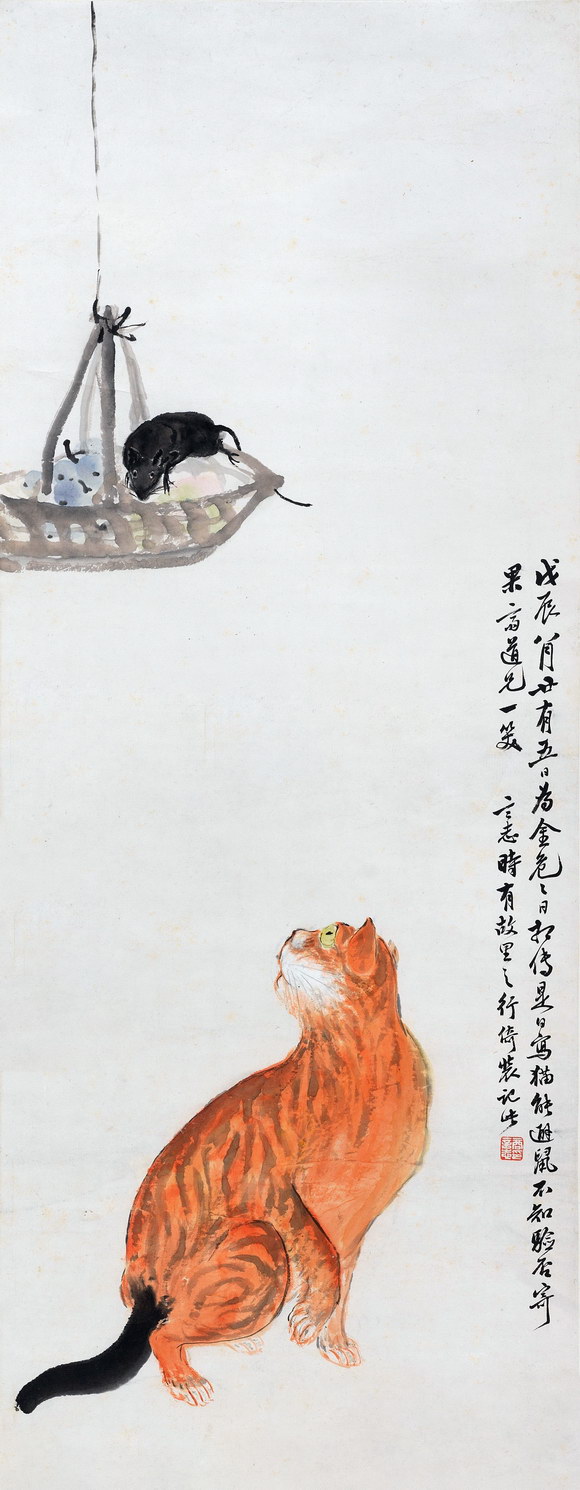 戊辰八月廿有五日為金危危日相傳是日寫猫能避鼠不知驗否寄
果齋道兄一笑 言志時有故里之行倚裝記此